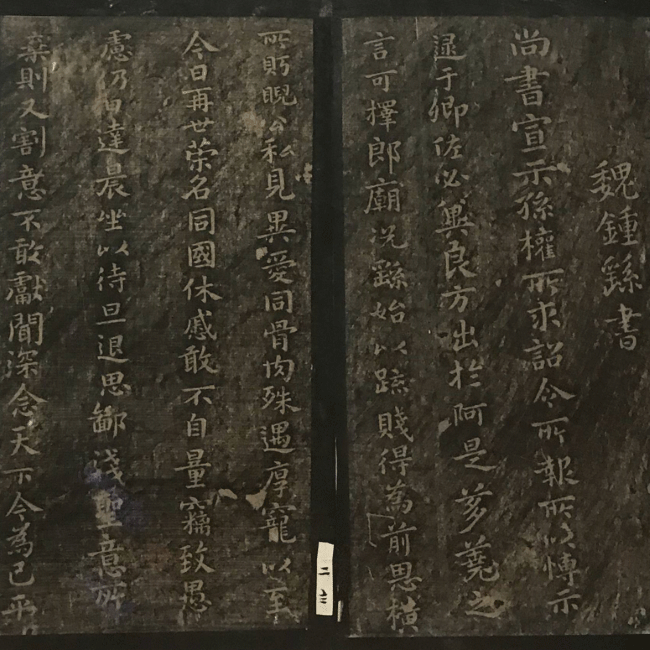 魏鍾繇書
尚書宣示孫權所求詔令所報所以博示
逮于卿佐必異良方出於阿是芻蕘之
言可擇郎廟況繇始以疏賤得為前恩橫
所眄睨公私見異愛同骨肉殊遇厚寵以至
今日再世榮名同國休慼敢不自量竊致愚
慮仍日達晨坐以待旦退思鄙淺聖意所
棄則又割意不敢獻聞深念天下今為已平
二